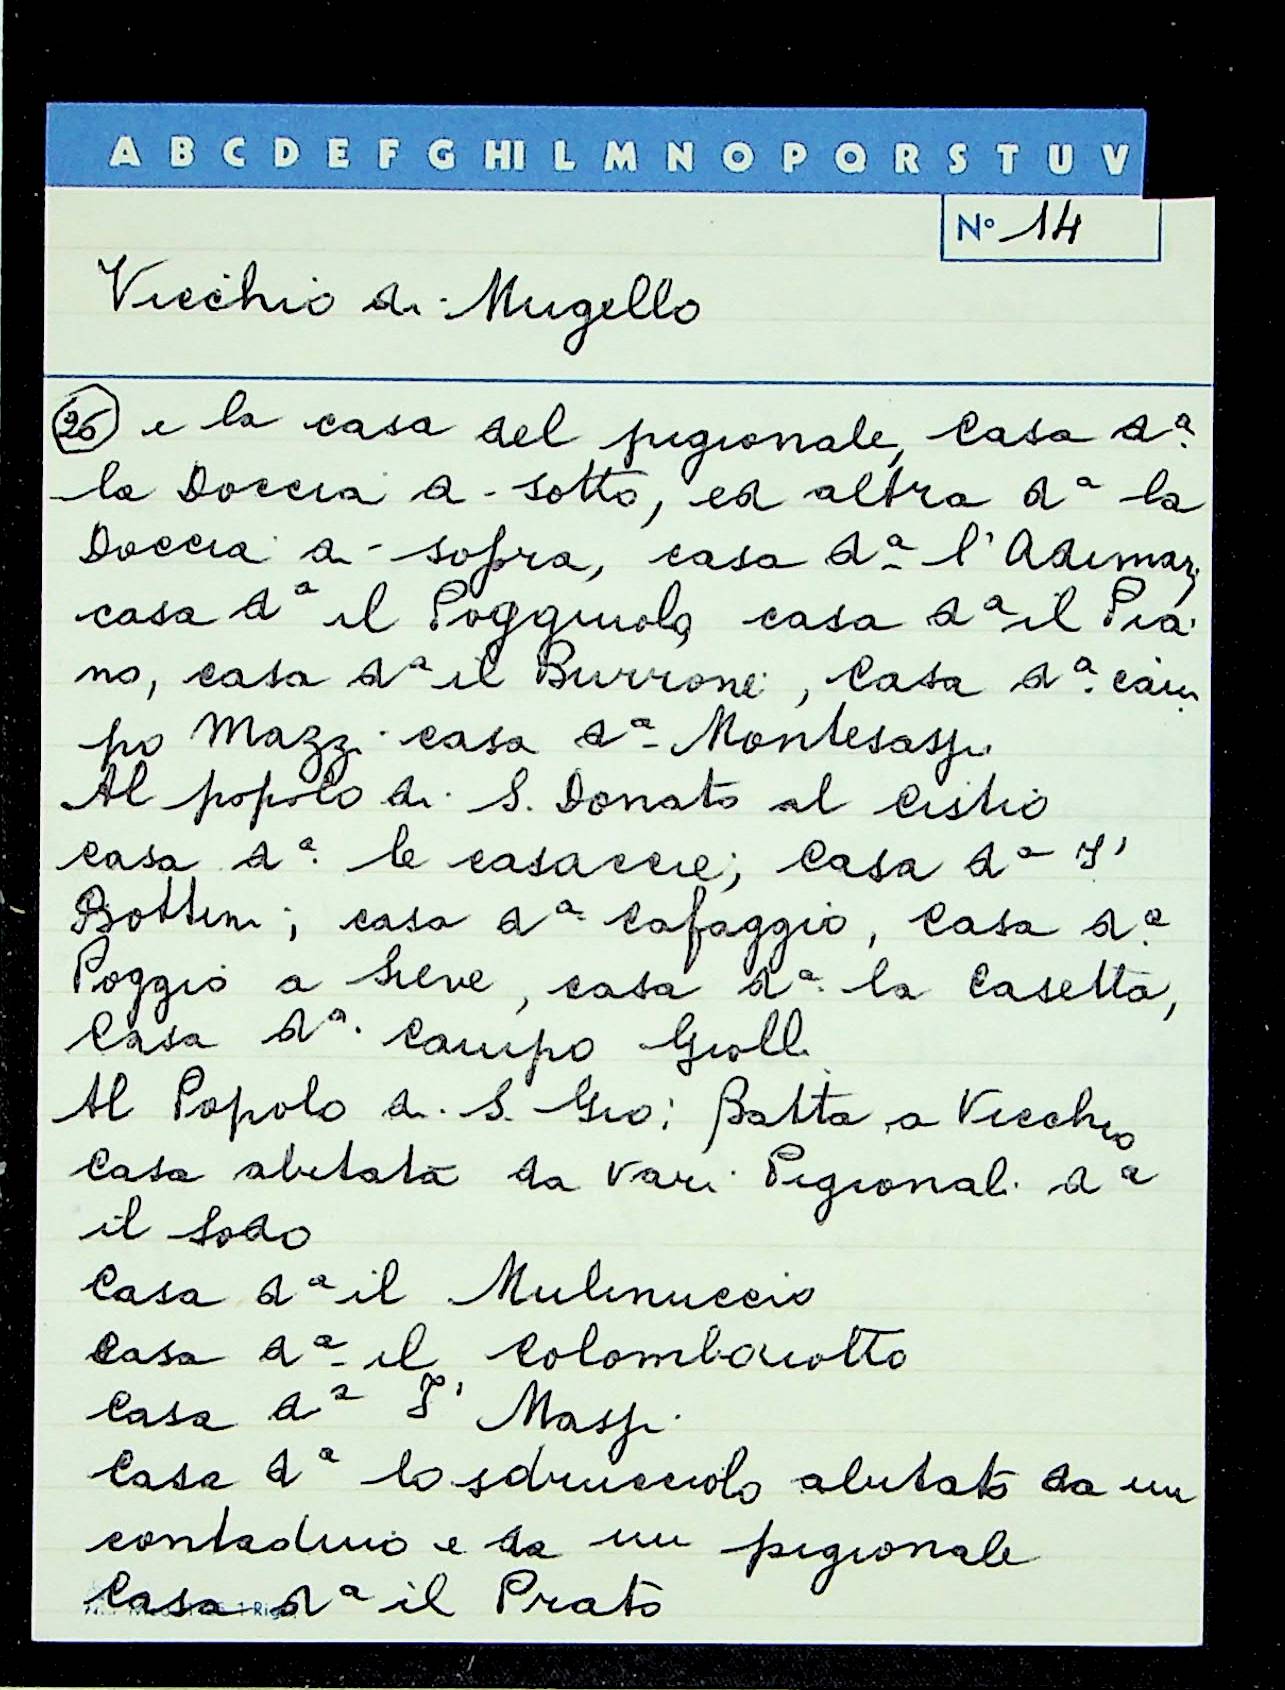 A B C D E F G HI L M N O P Q R S T U V
N° 14
Vicchio di Mugello
26 e la casa del pigionale, Casa d.ª
la Doccia di sotto, ed altra dª la
Doccia di sopra, casa dª l'Adimari,
casa dª il Poggiuolo, casa dª il Pia
no, casa dª il Burrone, Casa dª cam
po Mazzi casa dª Montesassi
Al popolo di S. Donato al Cistio
casa dª le casaccie; Casa dª I'
Bottini; casa dª Cafaggio, Casa d.ª
Poggio a Sieve, casa dª la Casetta,
Casa dª Campo Giolli
Al Popolo di S. Gio: Batta a Vicchio
Casa abitata da vari Pigionali dª
il Sodo
Casa dª il Mulinuccio
Casa dª il Colombaiotto
Casa dª I' Massi
Casa dª lo sdrucciolo abitato da un
contadino e da un pigionale
Casa dª il Prato